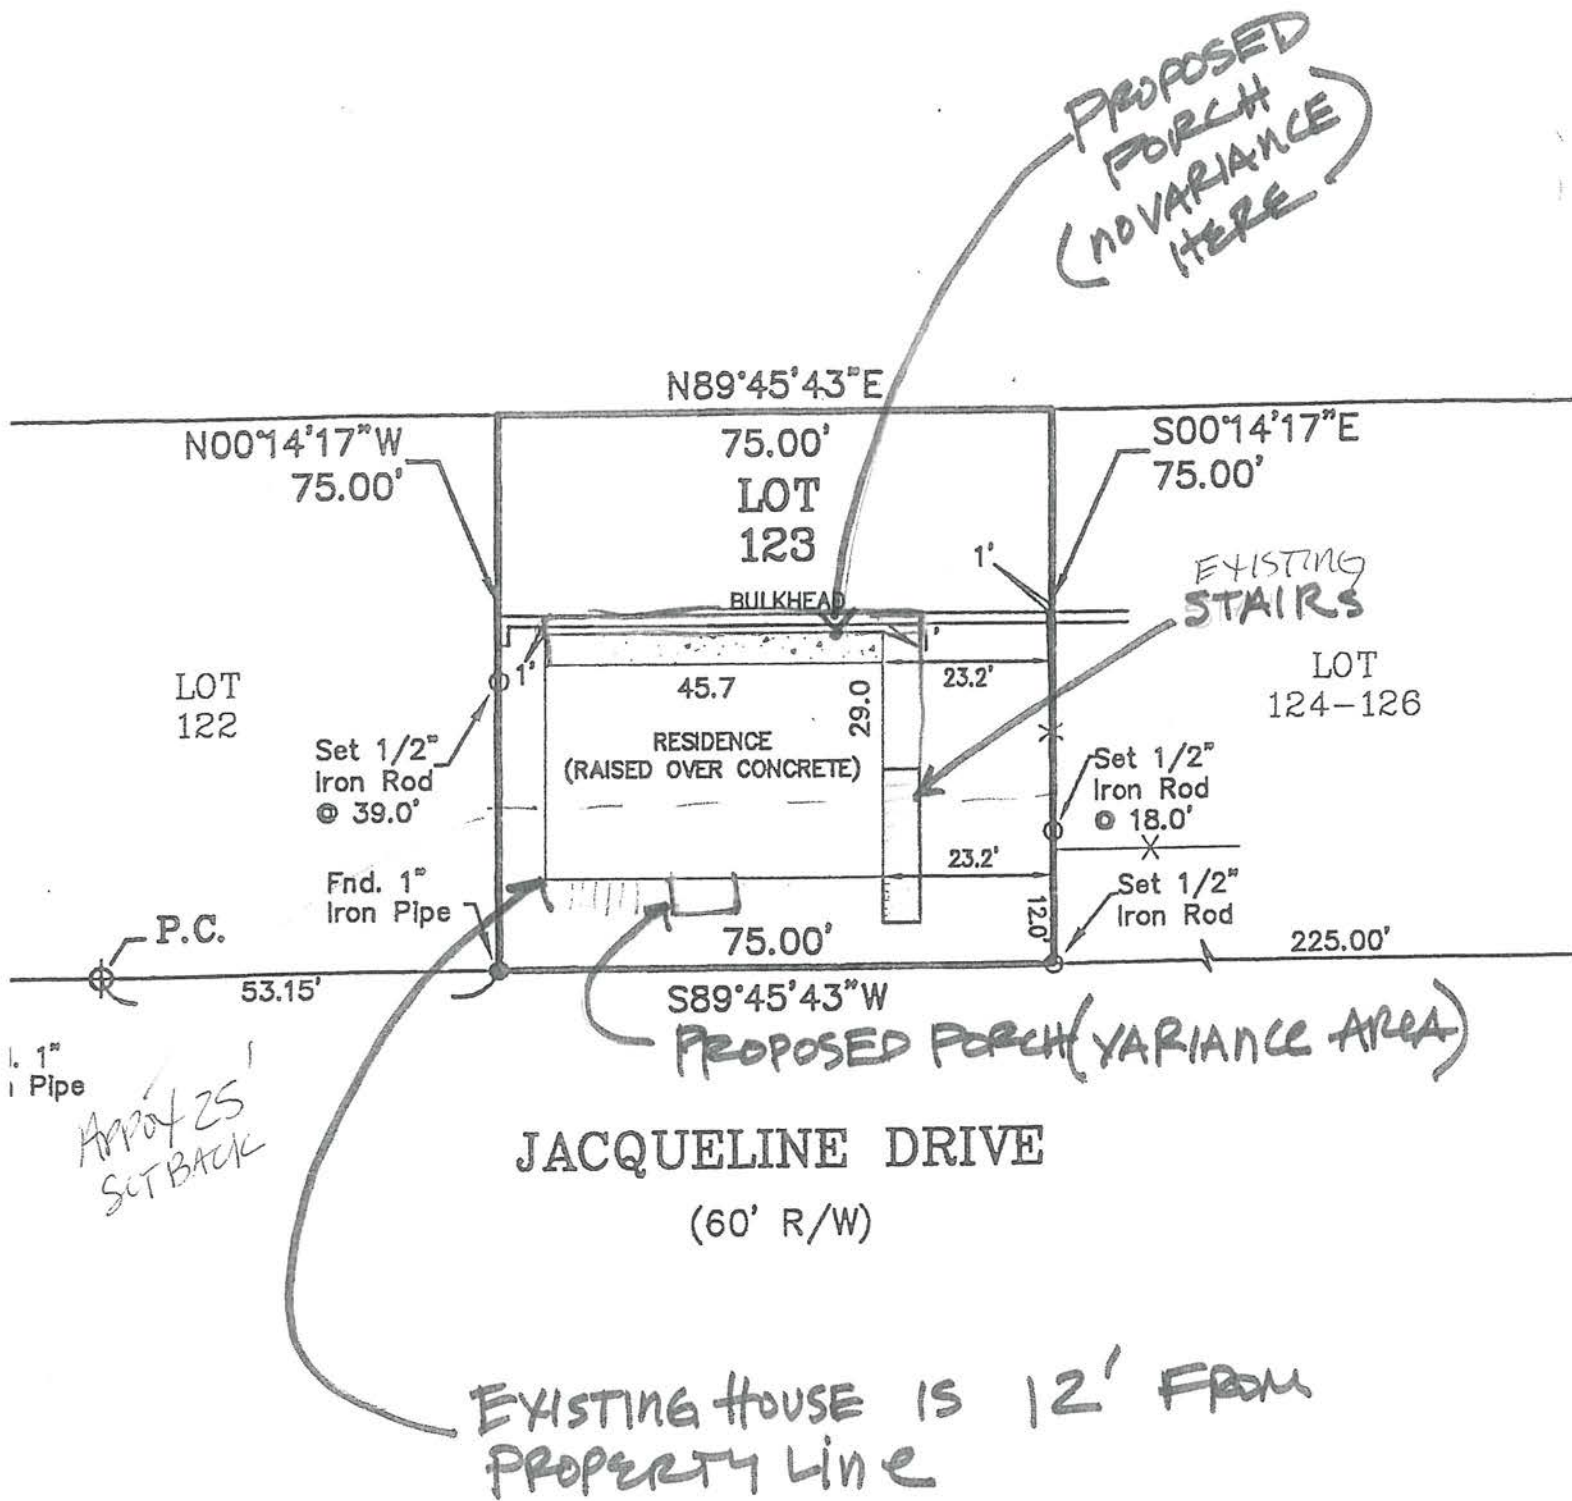 PROPOSED
PORCH
(NO VARIANCE
HERE)
N89°45'43"E
75.00'
LOT
123
N00°14'17"W
75.00'
S00°14'17"E
75.00'
1'
EXISTING
STAIRS
BULKHEAD
1'
1'
23.2'
45.7
29.0
LOT
122
LOT
124-126
RESIDENCE
(RAISED OVER CONCRETE)
Set 1/2"
Iron Rod
@ 39.0'
Set 1/2"
Iron Rod
@ 18.0'
23.2'
Fnd. 1"
Iron Pipe
Set 1/2"
Iron Rod
12.0'
P.C.
75.00'
225.00'
53.15'
S89°45'43"W
PROPOSED PORCH (VARIANCE AREA)
1"
Pipe
APPOX 25'
SETBACK
JACQUELINE DRIVE
(60' R/W)
EXISTING HOUSE IS 12' FROM
PROPERTY LINE